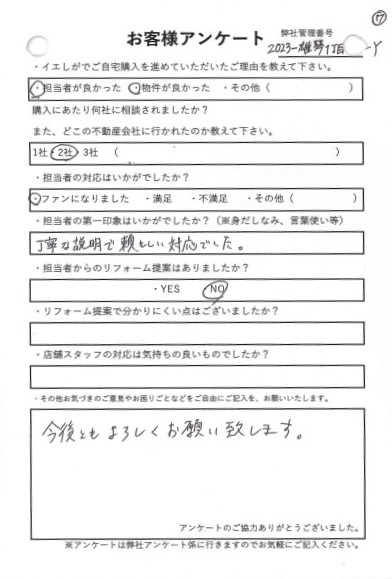 ⑰
お客様アンケート
弊社管理番号
2023-雄琴1丁目-Y
・イエしがでご自宅購入を進めていただいたご理由を教えて下さい。
・担当者が良かった ・物件が良かった ・その他（　　　　　）
購入にあたり何社に相談されましたか？
また、どこの不動産会社に行かれたのか教えて下さい。
1社・2社・3社（　　　　　）
・担当者の対応はいかがでしたか？
・ファンになりました ・満足 ・不満足 ・その他（　　　　　）
・担当者の第一印象はいかがでしたか？（※身だしなみ、言葉使い等）
丁寧な説明で頼もしい対応でした。
・担当者からのリフォーム提案はありましたか？
・YES　NO
・リフォーム提案で分かりにくい点はございましたか？
・店舗スタッフの対応は気持ちの良いものでしたか？
・その他お気づきのご意見やお困りごとなどをご自由にご記入を、お願いいたします。
今後ともよろしくお願い致します。
アンケートのご協力ありがとうございました。
※アンケートは弊社アンケート係に行きますのでお気軽にご記入ください。